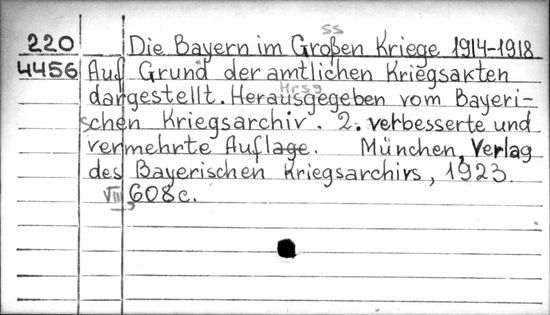 ss
220 Die Bayern im Großen Kriege 1914-1918
4456 Auf Grund der amtlichen Kriegsakten
Hrsg
dargestellt. Herausgegeben vom Bayeri-
schen Kriegsarchiv. 2. verbesserte und
vermehrte Auflage. München, Verlag
des Bayerischen Kriegsarchivs, 1923.
VIII, 608c.